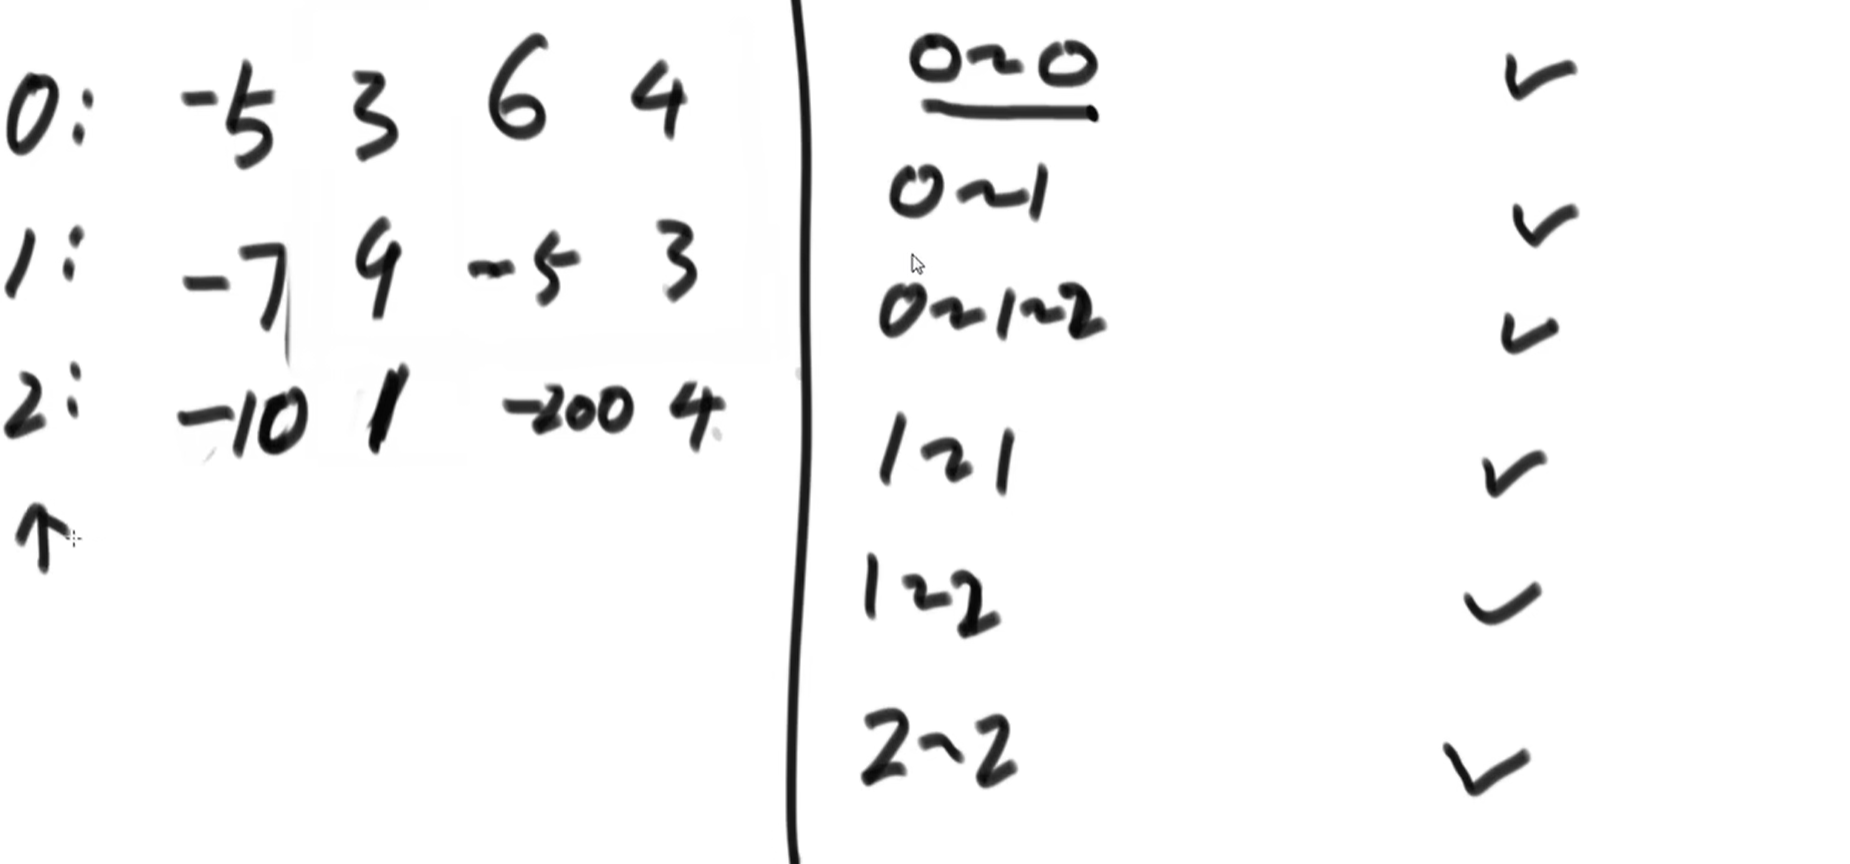 0: -5 3 6 4
1: -7 9 -5 3
2: -10 1 -200 4
↑
0~0 ✓
0~1 ✓
0~1~2 ✓
1~1 ✓
1~2 ✓
2~2 ✓